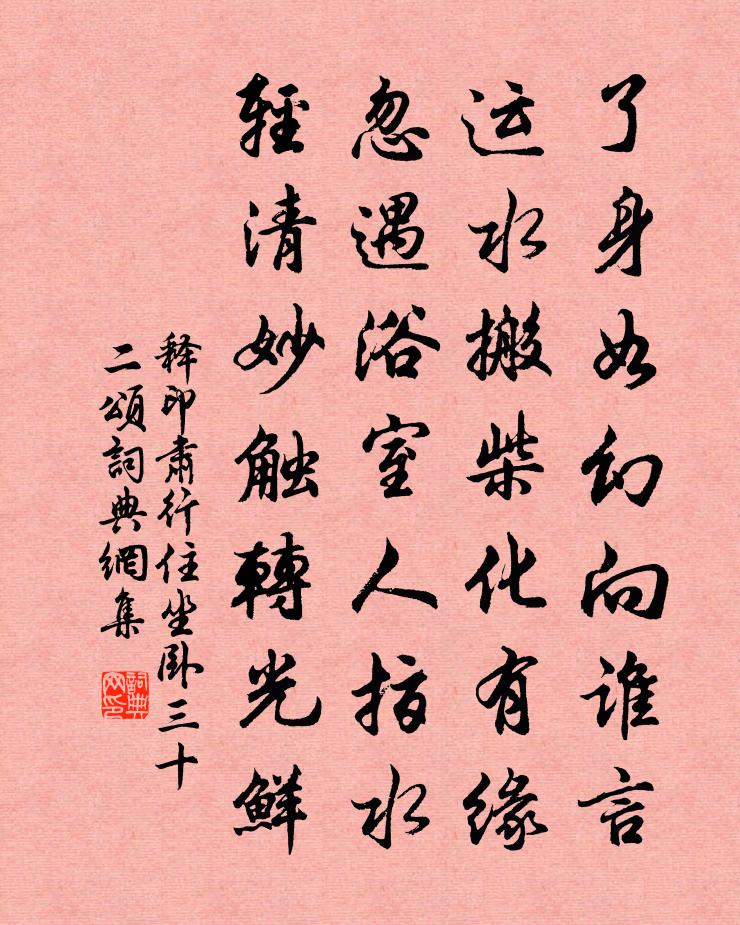 了身如幻向谁言
运水搬柴化有缘
忽遇浴室人指水
轻清妙触转光鲜
释印肃行住坐卧三十
二颂词典网集
词典
网印